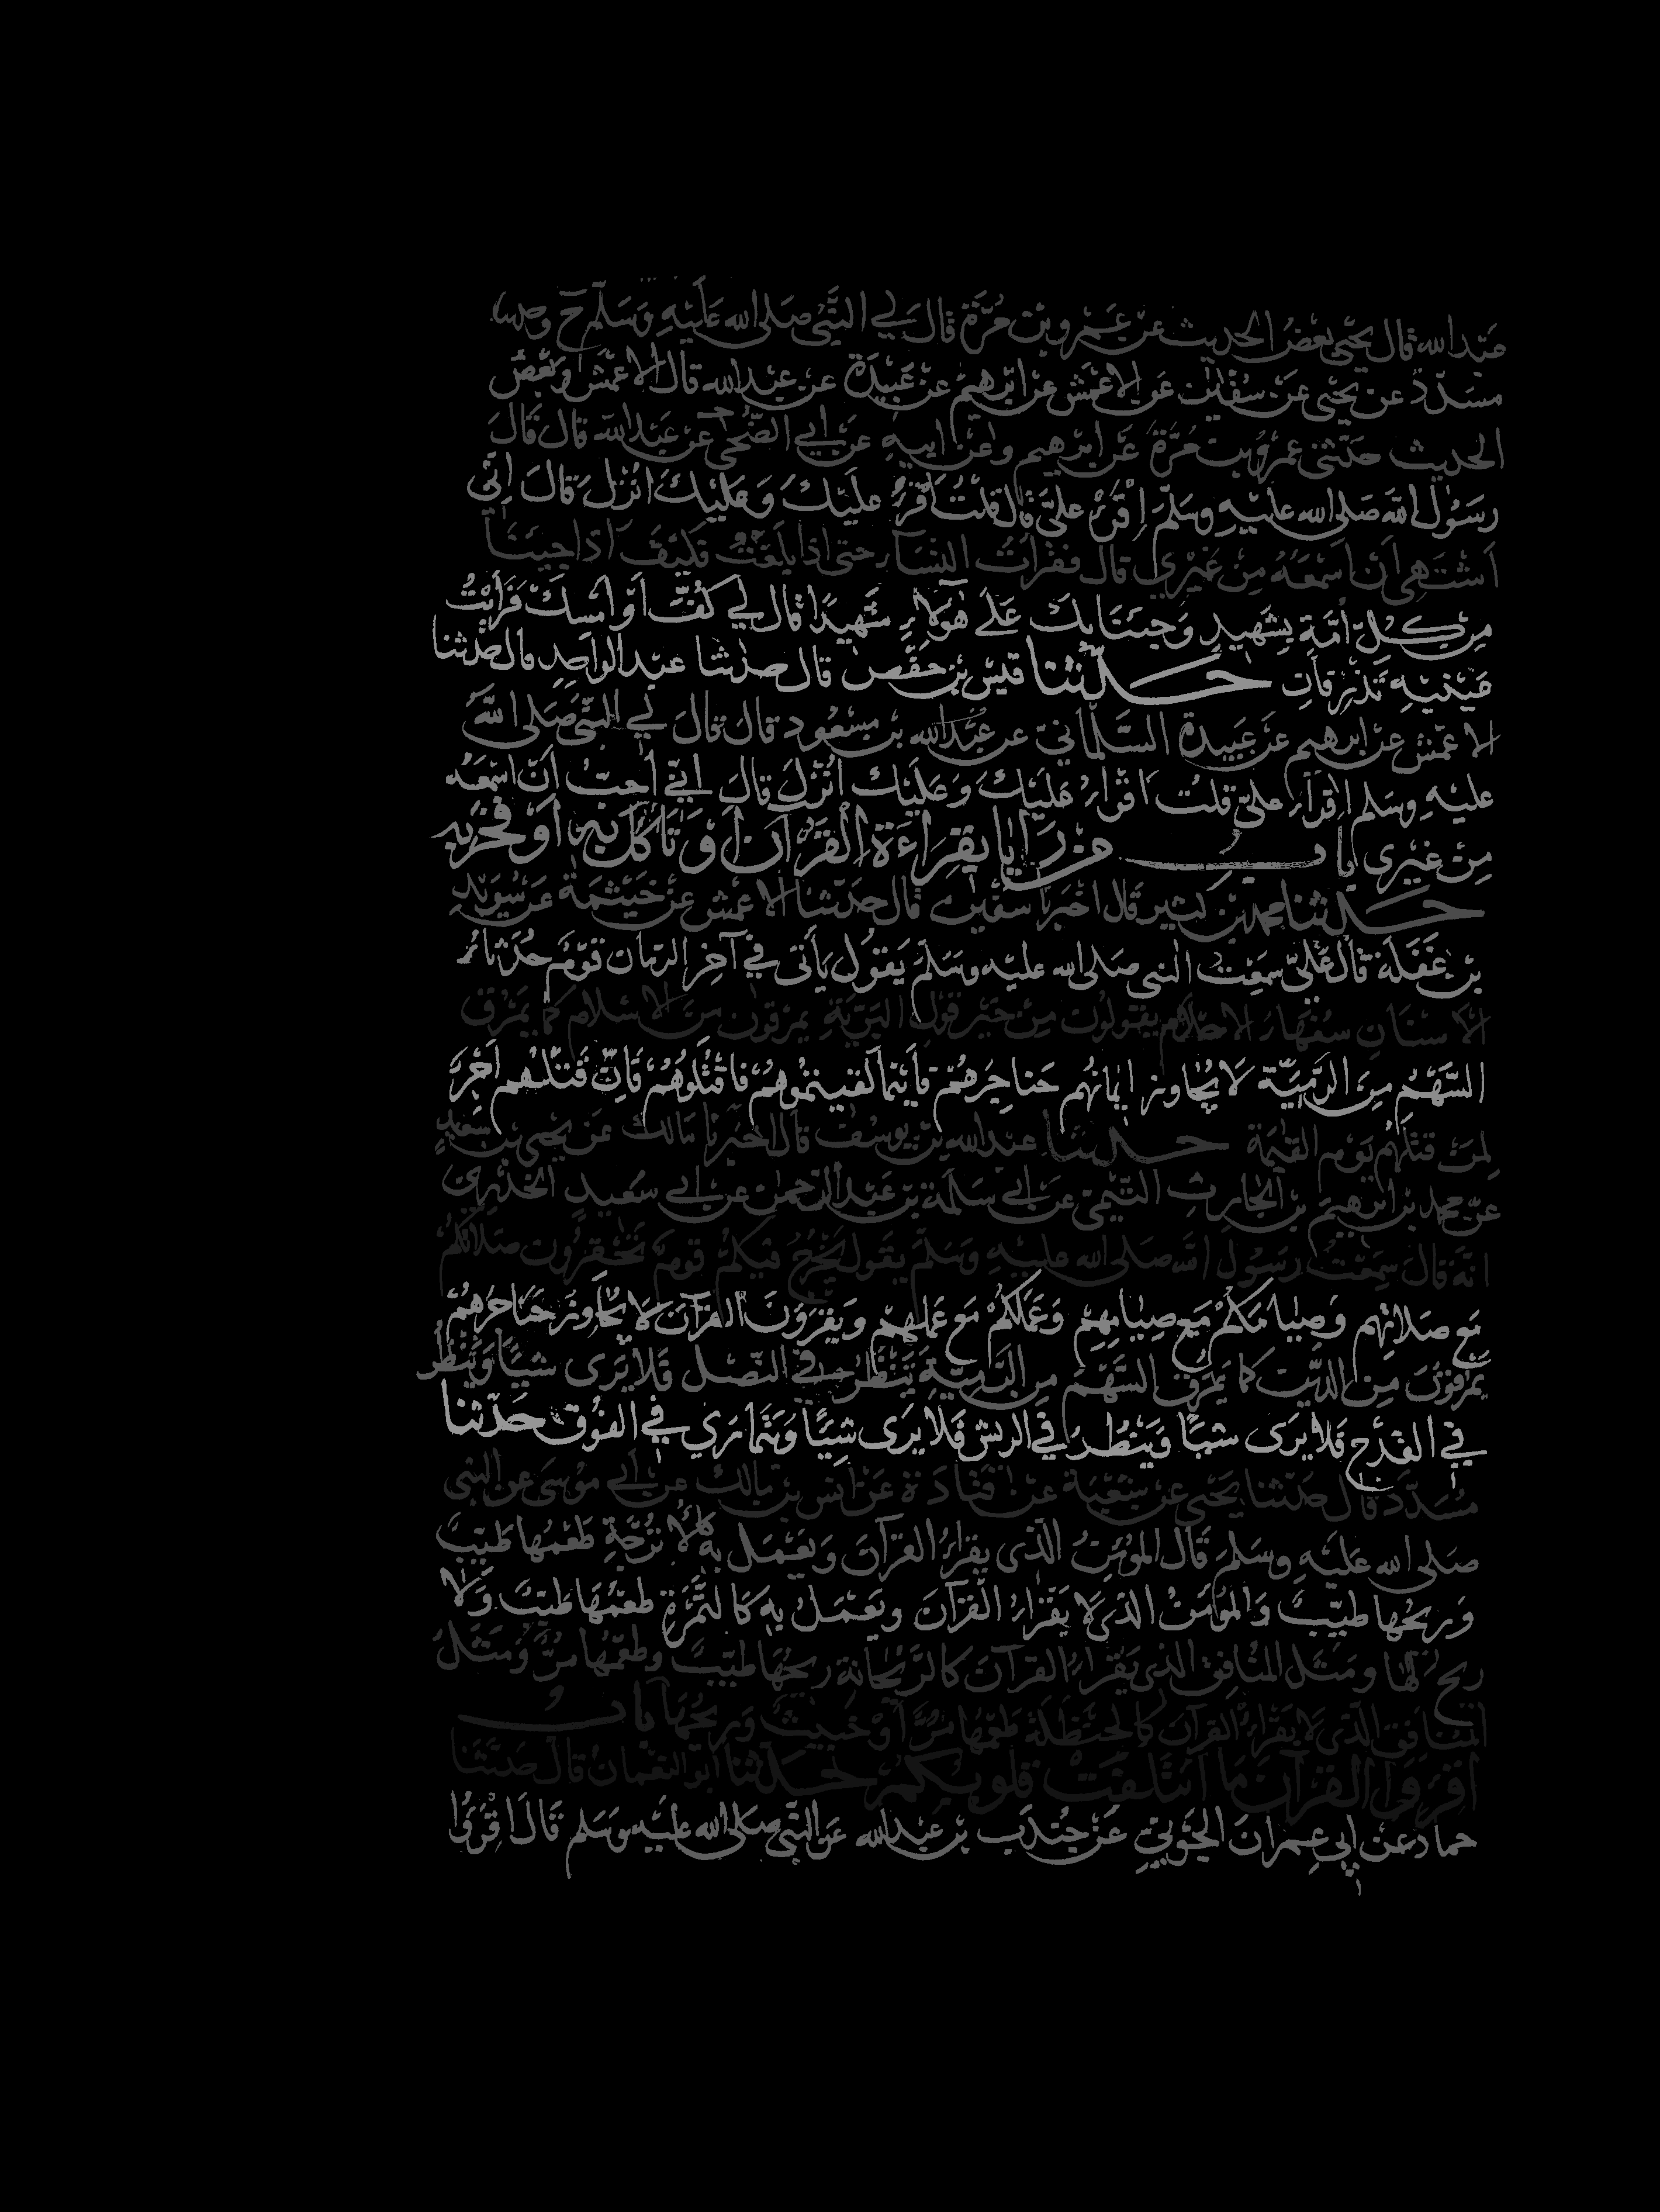 عبدالله قال يحيى بعض الحديث عن عمرو بن مرة قال لي النبي صلى الله عليه وسلم ح وحدثنا
مسدد عن يحيى عن سفين عن الاعمش عن ابرهيم عن عبيدة عن عبدالله قال الاعمش وبعض
الحديث حدثني عمرو بن مرة عن ابرهيم وعن ابيه عن ابي الضحى عن عبدالله قال قال
رسول الله صلى الله عليه وسلم اقرء على قال قلت اقرء عليك وعليك انزل قال اني
اشتهي ان اسمعه من غيري قال فقرات النساء حتى اذا بلغت فكيف اذا جينا
من كل امة بشهيد وجئنا بك على هؤلاء شهيدا قال لي كف او امسك فرايت
عينيه تذرفان حدثنا قيس بن حفص قال حدثنا عبد الواحد قال حدثنا
الاعمش عن ابرهيم عن عبيدة السلماني عن عبدالله بن مسعود قال قال لي النبي صلى الله
عليه وسلم اقراء على قلت اقراء عليك وعليك انزل قال اني احب ان اسمعه
من غيري باب من رايا بقراءة القرآن او تاكل به او فخر به
حدثنا محمد بن كثير قال اخبرنا سفين قال حدثنا الاعمش عن خيثمة عن سويد
بن غفلة قال علي سمعت النبي صلى الله عليه وسلم يقول ياتي في آخر الزمان قوم حدثاء
الاسنان سفهاء الاحلام يقولون من خير قول البرية يمرقون من الاسلام كما يمرق
السهم من الرمية لا يجاوز ايمانهم حناجرهم فاينما لقيتموهم فاقتلوهم فان قتلهم اجر
لمن قتلهم يوم القيمة حدثنا عبدالله بن يوسف قال اخبرنا مالك عن يحيى بن سعيد
عن محمد بن ابرهيم بن الحارث التيمي عن ابي سلمة بن عبد الرحمن عن ابي سعيد الخدري
انه قال سمعت رسول الله صلى الله عليه وسلم يقول يخرج فيكم قوم تحقرون صلاتكم
مع صلاتهم وصيامكم مع صيامهم وعملكم مع عملهم ويقرون القرآن لا يجاوز حناجرهم
يمرقون من الدين كما يمرق السهم من الرمية ينظر في النصل فلا يرى شيا وينظر
في القدح فلا يرى شيا وينظر في الريش فلا يرى شيا ويتمارى في الفوق حدثنا
مسدد قال حدثنا يحيى عن شعبة عن قتادة عن انس بن مالك عن ابي موسى عن النبي
صلى الله عليه وسلم قال المؤمن الذي يقراء القرآن ويعمل به كالاترجة طعمها طيب
وريحها طيب والمؤمن الذي لا يقراء القرآن ويعمل به كالتمرة طعمها طيب ولا
ريح لها ومثل المنافق الذي يقراء القرآن كالريحانة ريحها طيب وطعمها مر ومثل
المنافق الذي لا يقراء القرآن كالحنظلة طعمها مر او خبيث وريحها باب
اقرؤا القرآن ما ائتلفت قلوبكم حدثنا ابو النعمان قال حدثنا
حماد عن ابي عمران الجوني عن جندب بن عبدالله عن النبي صلى الله عليه وسلم قال اقرؤا